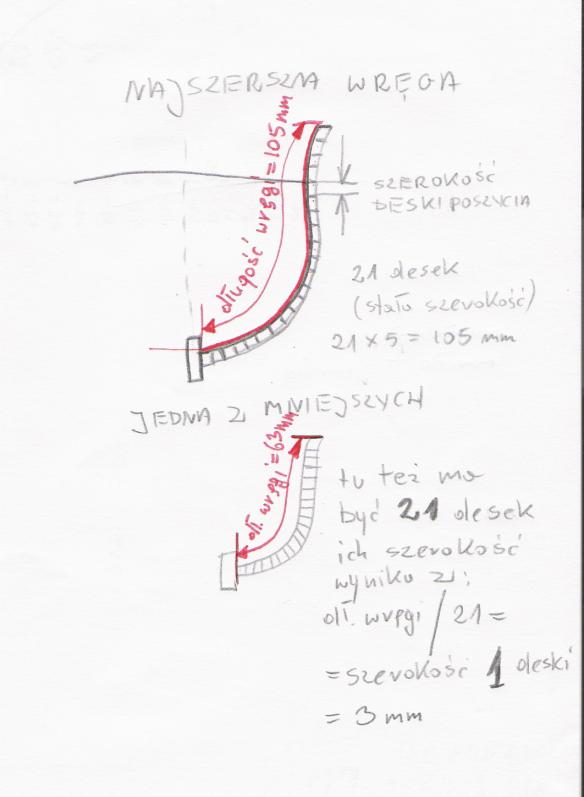 NAJSZERSZNA WRĘGA
długość wręgi = 105 mm
SZEROKOŚĆ
DESKI POSZYCIA
21 desek
(stała szerokość)
21 x 5 = 105 mm
JEDNA Z MNIEJSZYCH
dł. wręgi = 63 mm
tu też ma
być 21 desek
ich szerokość
wynika z:
dł. wręgi / 21 =
= szerokość 1 deski
= 3 mm